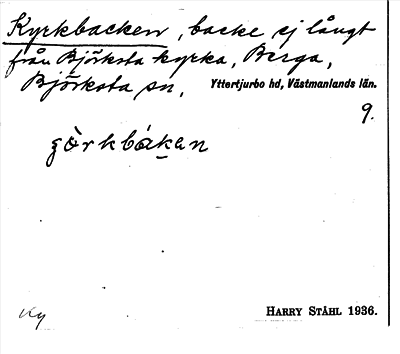 Kyrkbacken, backe ej långt
från Björksta kyrka, Berga,
Björksta sn, Yttertjurbo hd, Västmanlands län.
9.
Ky
HARRY STÅHL 1936.